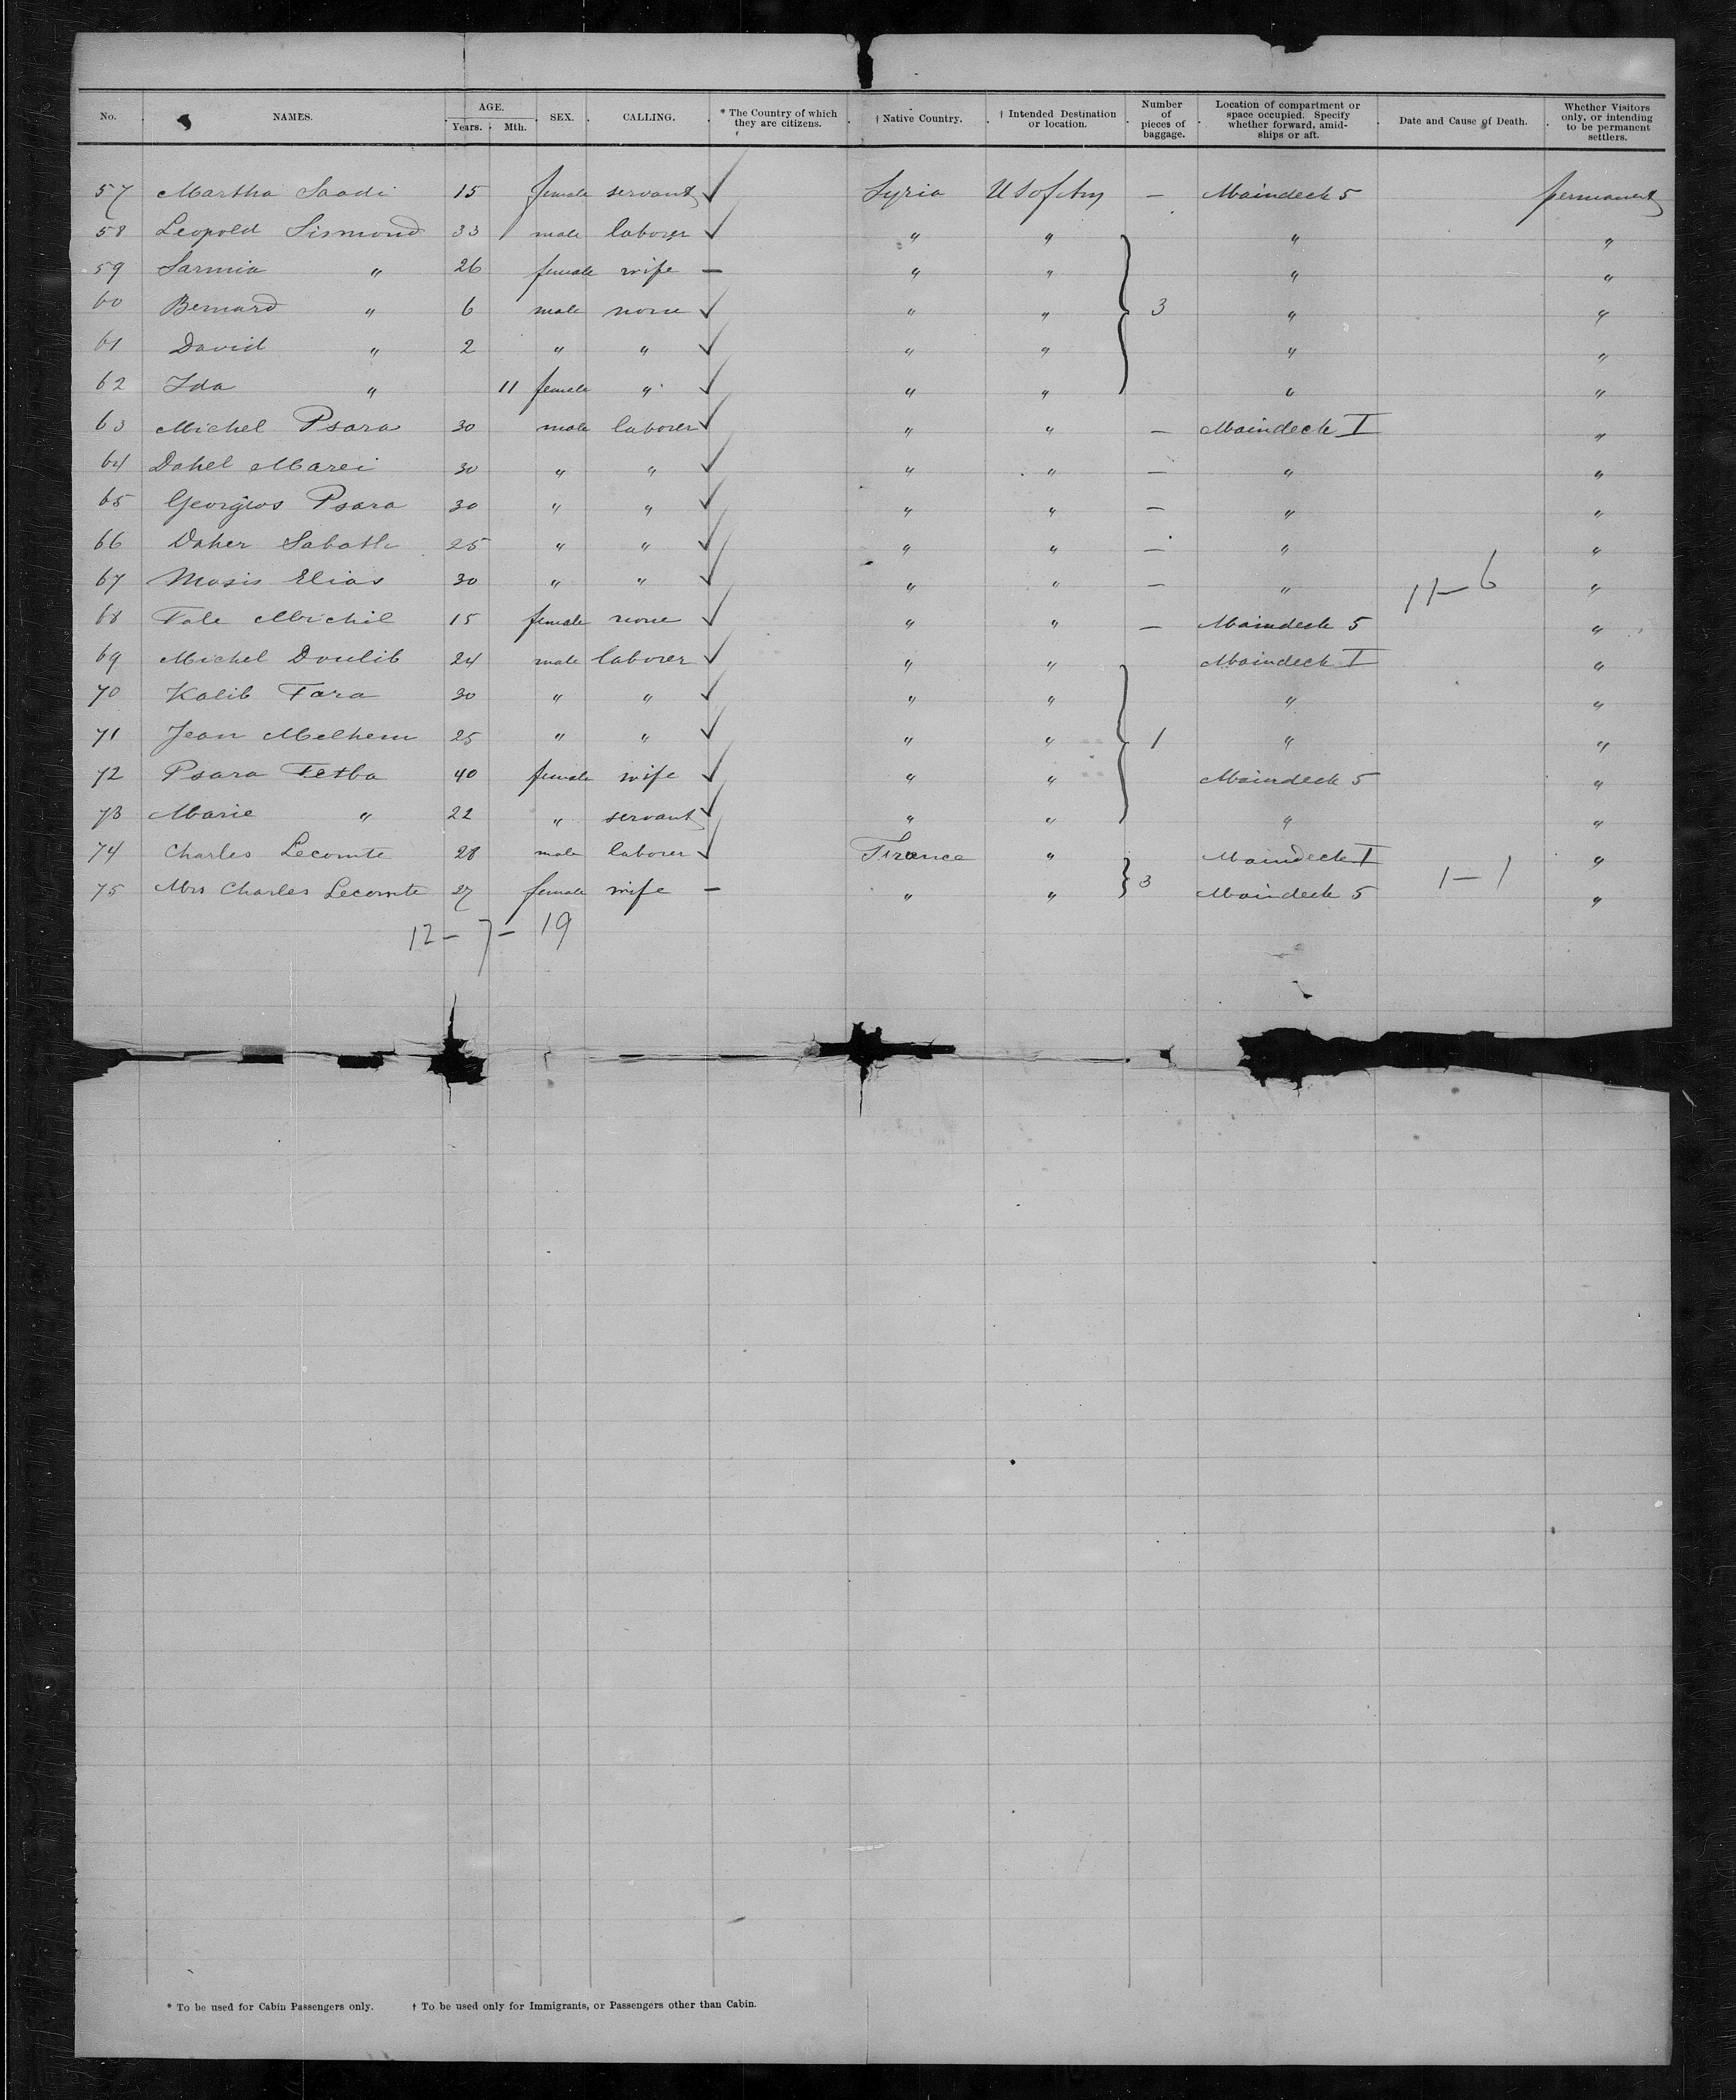 No. NAMES. AGE. Years. Mth. SEX. CALLING. * The Country of which they are citizens. † Native Country. † Intended Destination or location. Number of pieces of baggage. Location of compartment or space occupied. Specify whether forward, amidships or aft. Date and Cause of Death. Whether Visitors only, or intending to be permanent settlers.
57 Martha Saadi 15 female servant ✓ Syria U S of Am — Maindeck 5 permanent
58 Leopold Sismond 33 male laborer ✓ " " " "
59 Sarmia " 26 female wife — " " " "
60 Bernard " 6 male none ✓ " " 3 " "
61 David " 2 " " ✓ " " " "
62 Ida " 11 female " ✓ " " " "
63 Michel Psara 30 male laborer ✓ " " — Maindeck I "
64 Dahel Marei 30 " " ✓ " " — " "
65 Georgios Psara 30 " " ✓ " " — " "
66 Daher Sabath 25 " " ✓ " " — " "
67 Mosis Elias 30 " " ✓ " " — " 11—6 "
68 Tale Michil 15 female none ✓ " " — Maindeck 5 "
69 Michel Doulib 24 male laborer ✓ " " Maindeck I "
70 Kalib Fara 30 " " ✓ " " " "
71 Jean Melhem 25 " " ✓ " " 1 " "
72 Psara Tetba 40 female wife ✓ " " Maindeck 5 "
73 Marie " 22 " servant ✓ " " " "
74 Charles Lecomte 28 male laborer ✓ France " Maindeck I "
75 Mrs Charles Lecomte 27 female wife — " " 3 Maindeck 5 1—1 "
12—7—19
* To be used for Cabin Passengers only. † To be used only for Immigrants, or Passengers other than Cabin.